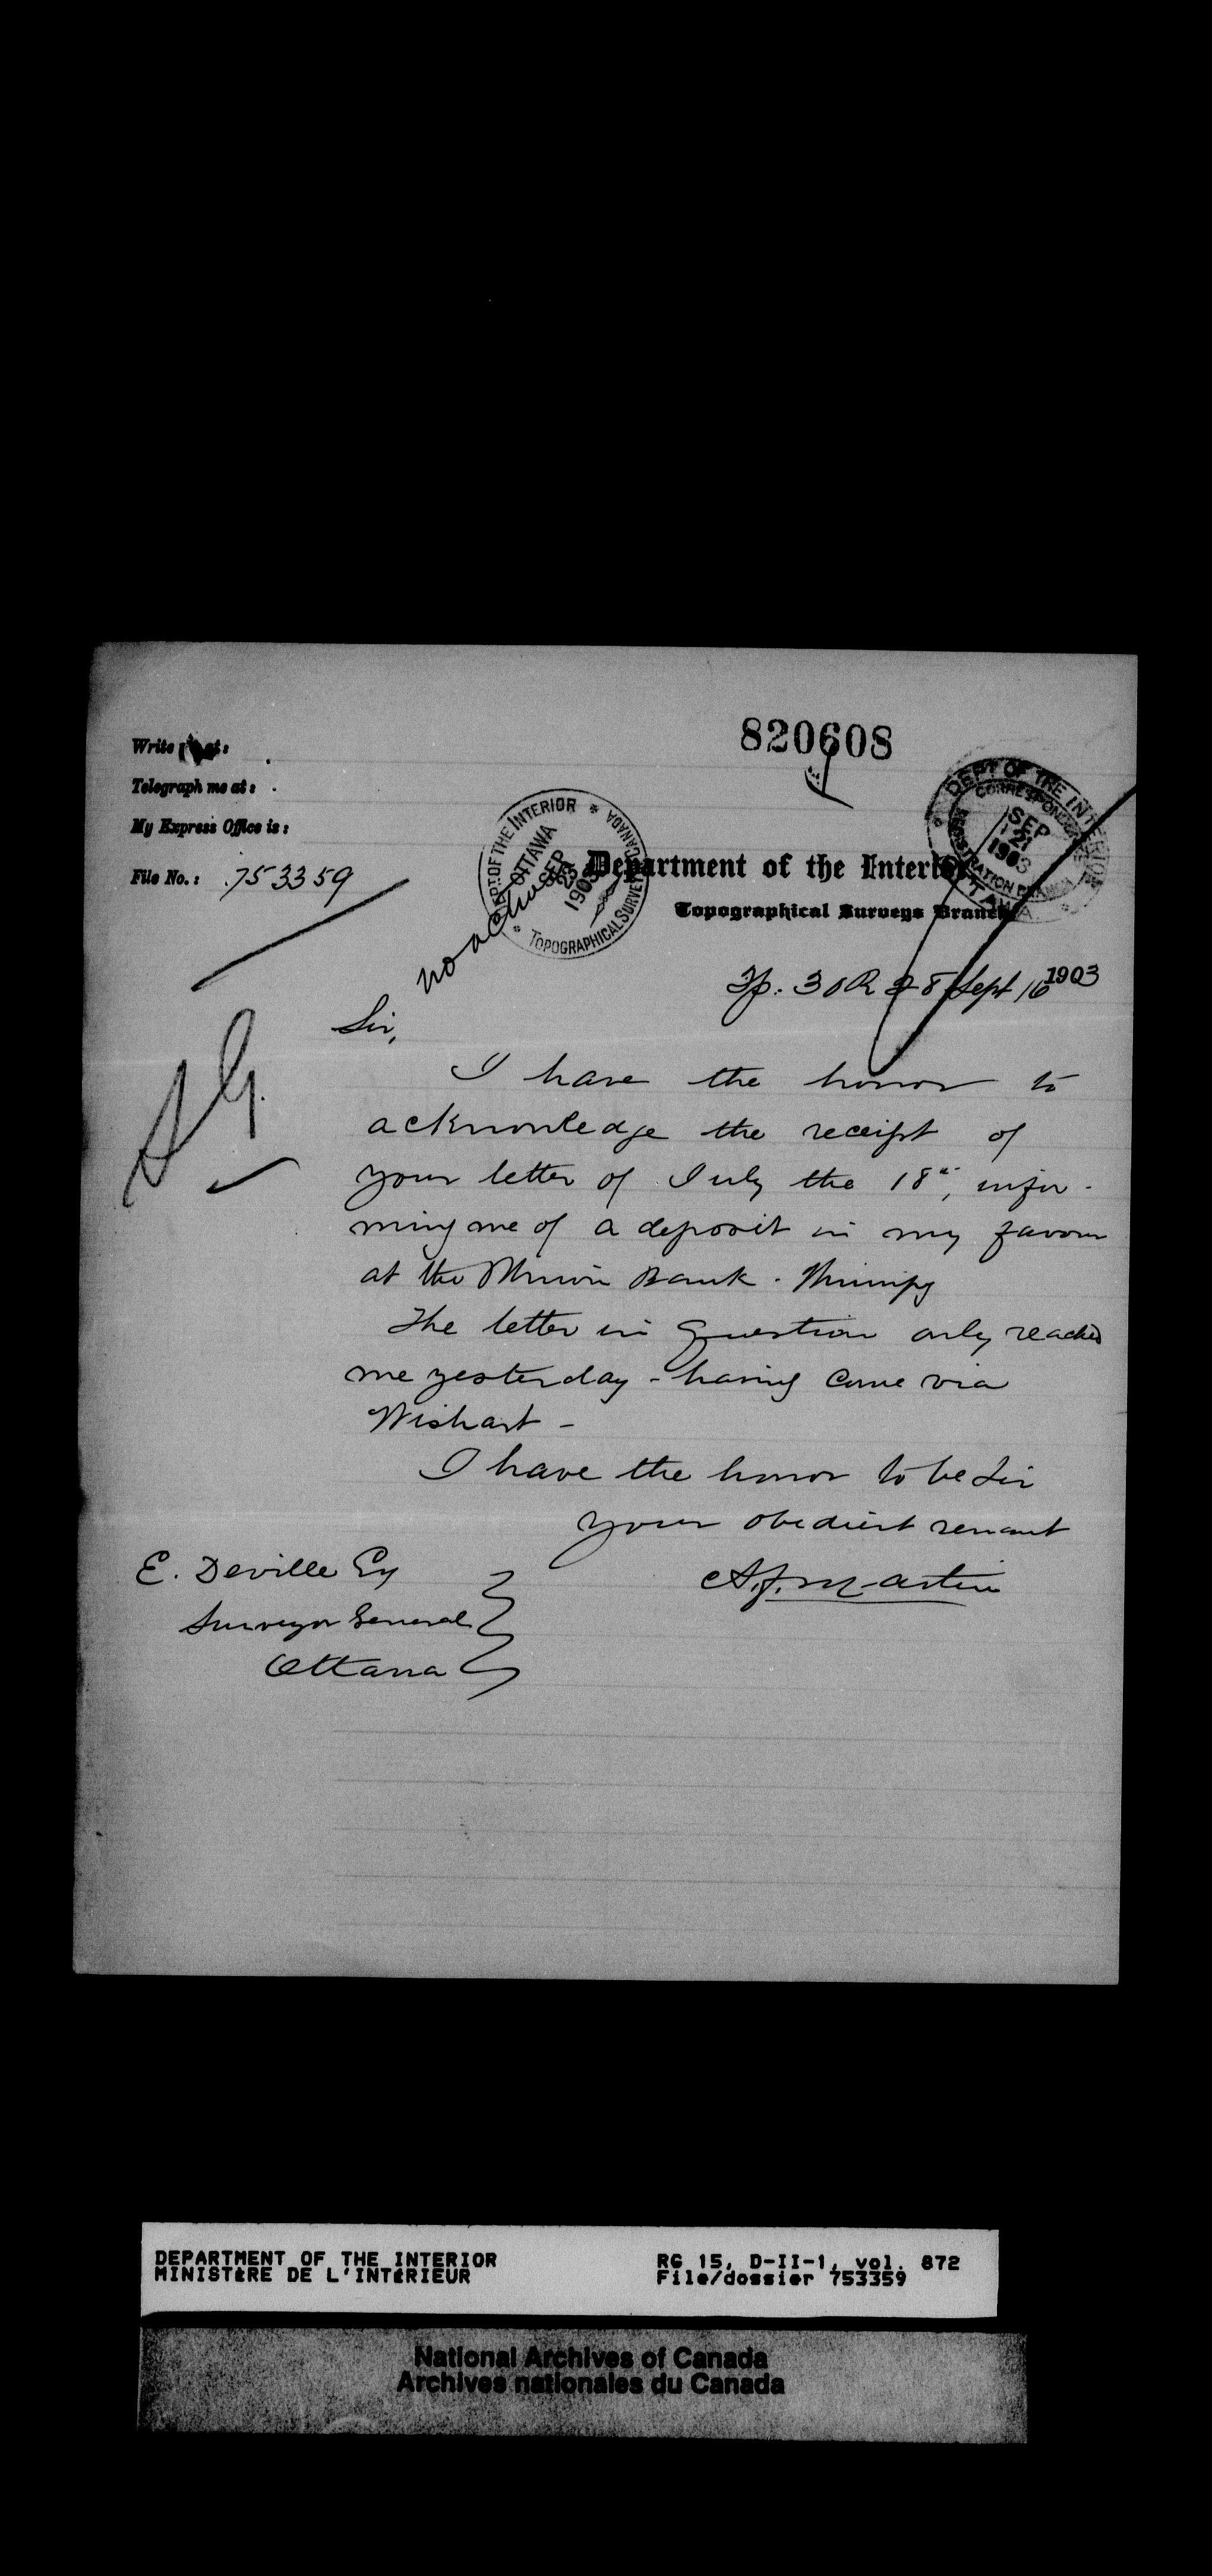 820608
Write me at:
Telegraph me at:
My Express Office is:
File No.: 753359
DEPT OF THE INTERIOR * OTTAWA SEP 21 1903 * TOPOGRAPHICAL SURVEYS CANADA
DEPT OF THE INTERIOR CORRESPONDENCE REGISTRATION BRANCH SEP 21 1903 OTTAWA
no action
Department of the Interior
Topographical Surveys Branch
Tp. 30 R 28 Sept 16 1903
S G.
Sir,
I have the honor to
acknowledge the receipt of
your letter of July the 18th, infor-
ming me of a deposit in my favour
at the Union Bank. Winnipeg
The letter in question only reached
me yesterday - having come via
Wishart -
I have the honor to be Sir
your obedient servant
A.J. Martin
E. Deville Esq
Surveyor General
Ottawa
DEPARTMENT OF THE INTERIOR
MINISTÈRE DE L'INTÉRIEUR
RG 15, D-II-1, vol. 872
File/dossier 753359
National Archives of Canada
Archives nationales du Canada